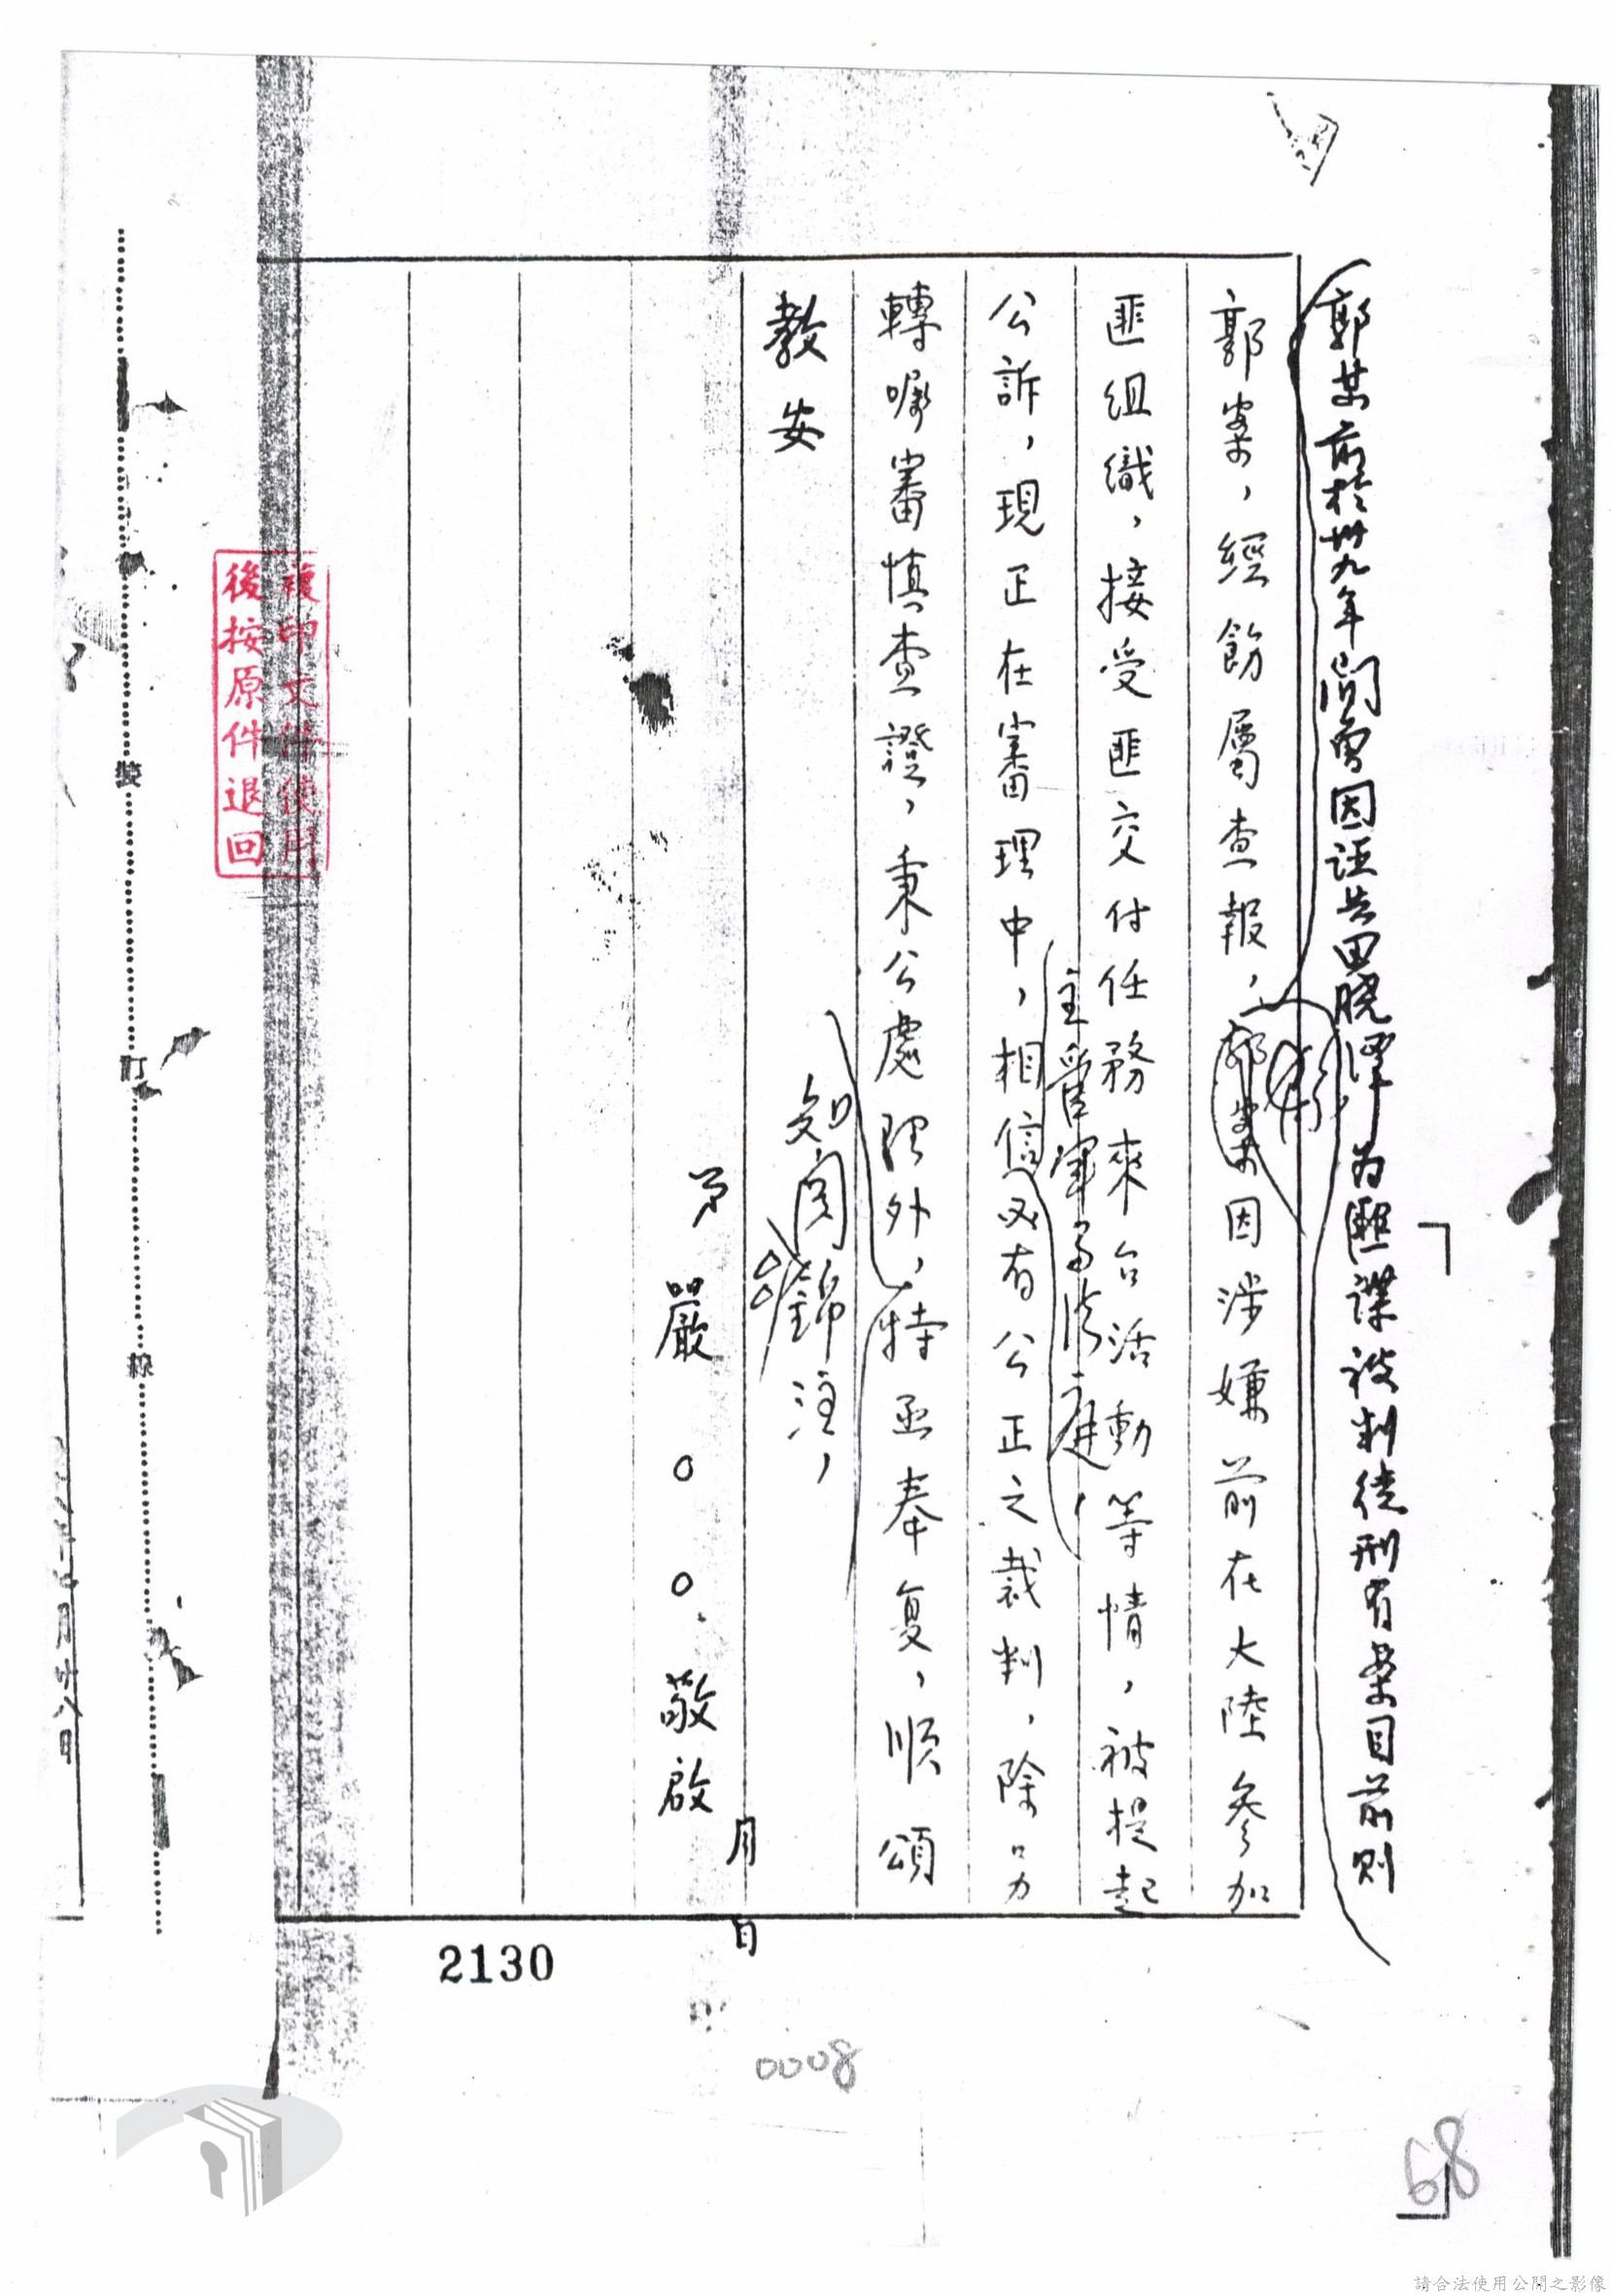 郭某前於卅九年間曾因誣共田曉澤為匪諜被判徒刑有案目前則
郭案，經飭屬查報，郭案因涉嫌前在大陸參加
匪組織，接受匪交付任務來台活動等情，被提起
主管軍事法庭，
公訴，現正在審理中，相信必有公正之裁判，除另
轉囑審慎查證，秉公處理外，特函奉复，順頌
知関錦注，
教安
弟嚴○○敬啟
月 日
複印文件使用
後按原件退回
裝 訂 線
月廿八日
2130
0008
68
請合法使用公開之影像